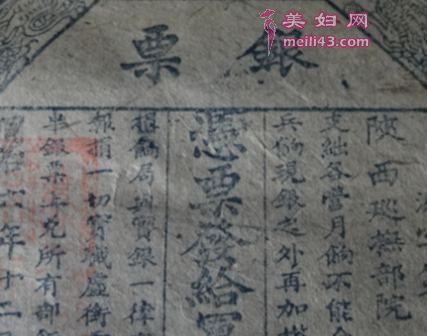 美妇网
meili43.com
銀票
陝西巡撫部院
支絀各營月餉不能
兵餉現銀之外再加
憑票發給
局與實銀一律
報捐一切實職虛銜
半銀票上兌所有部
六年十二